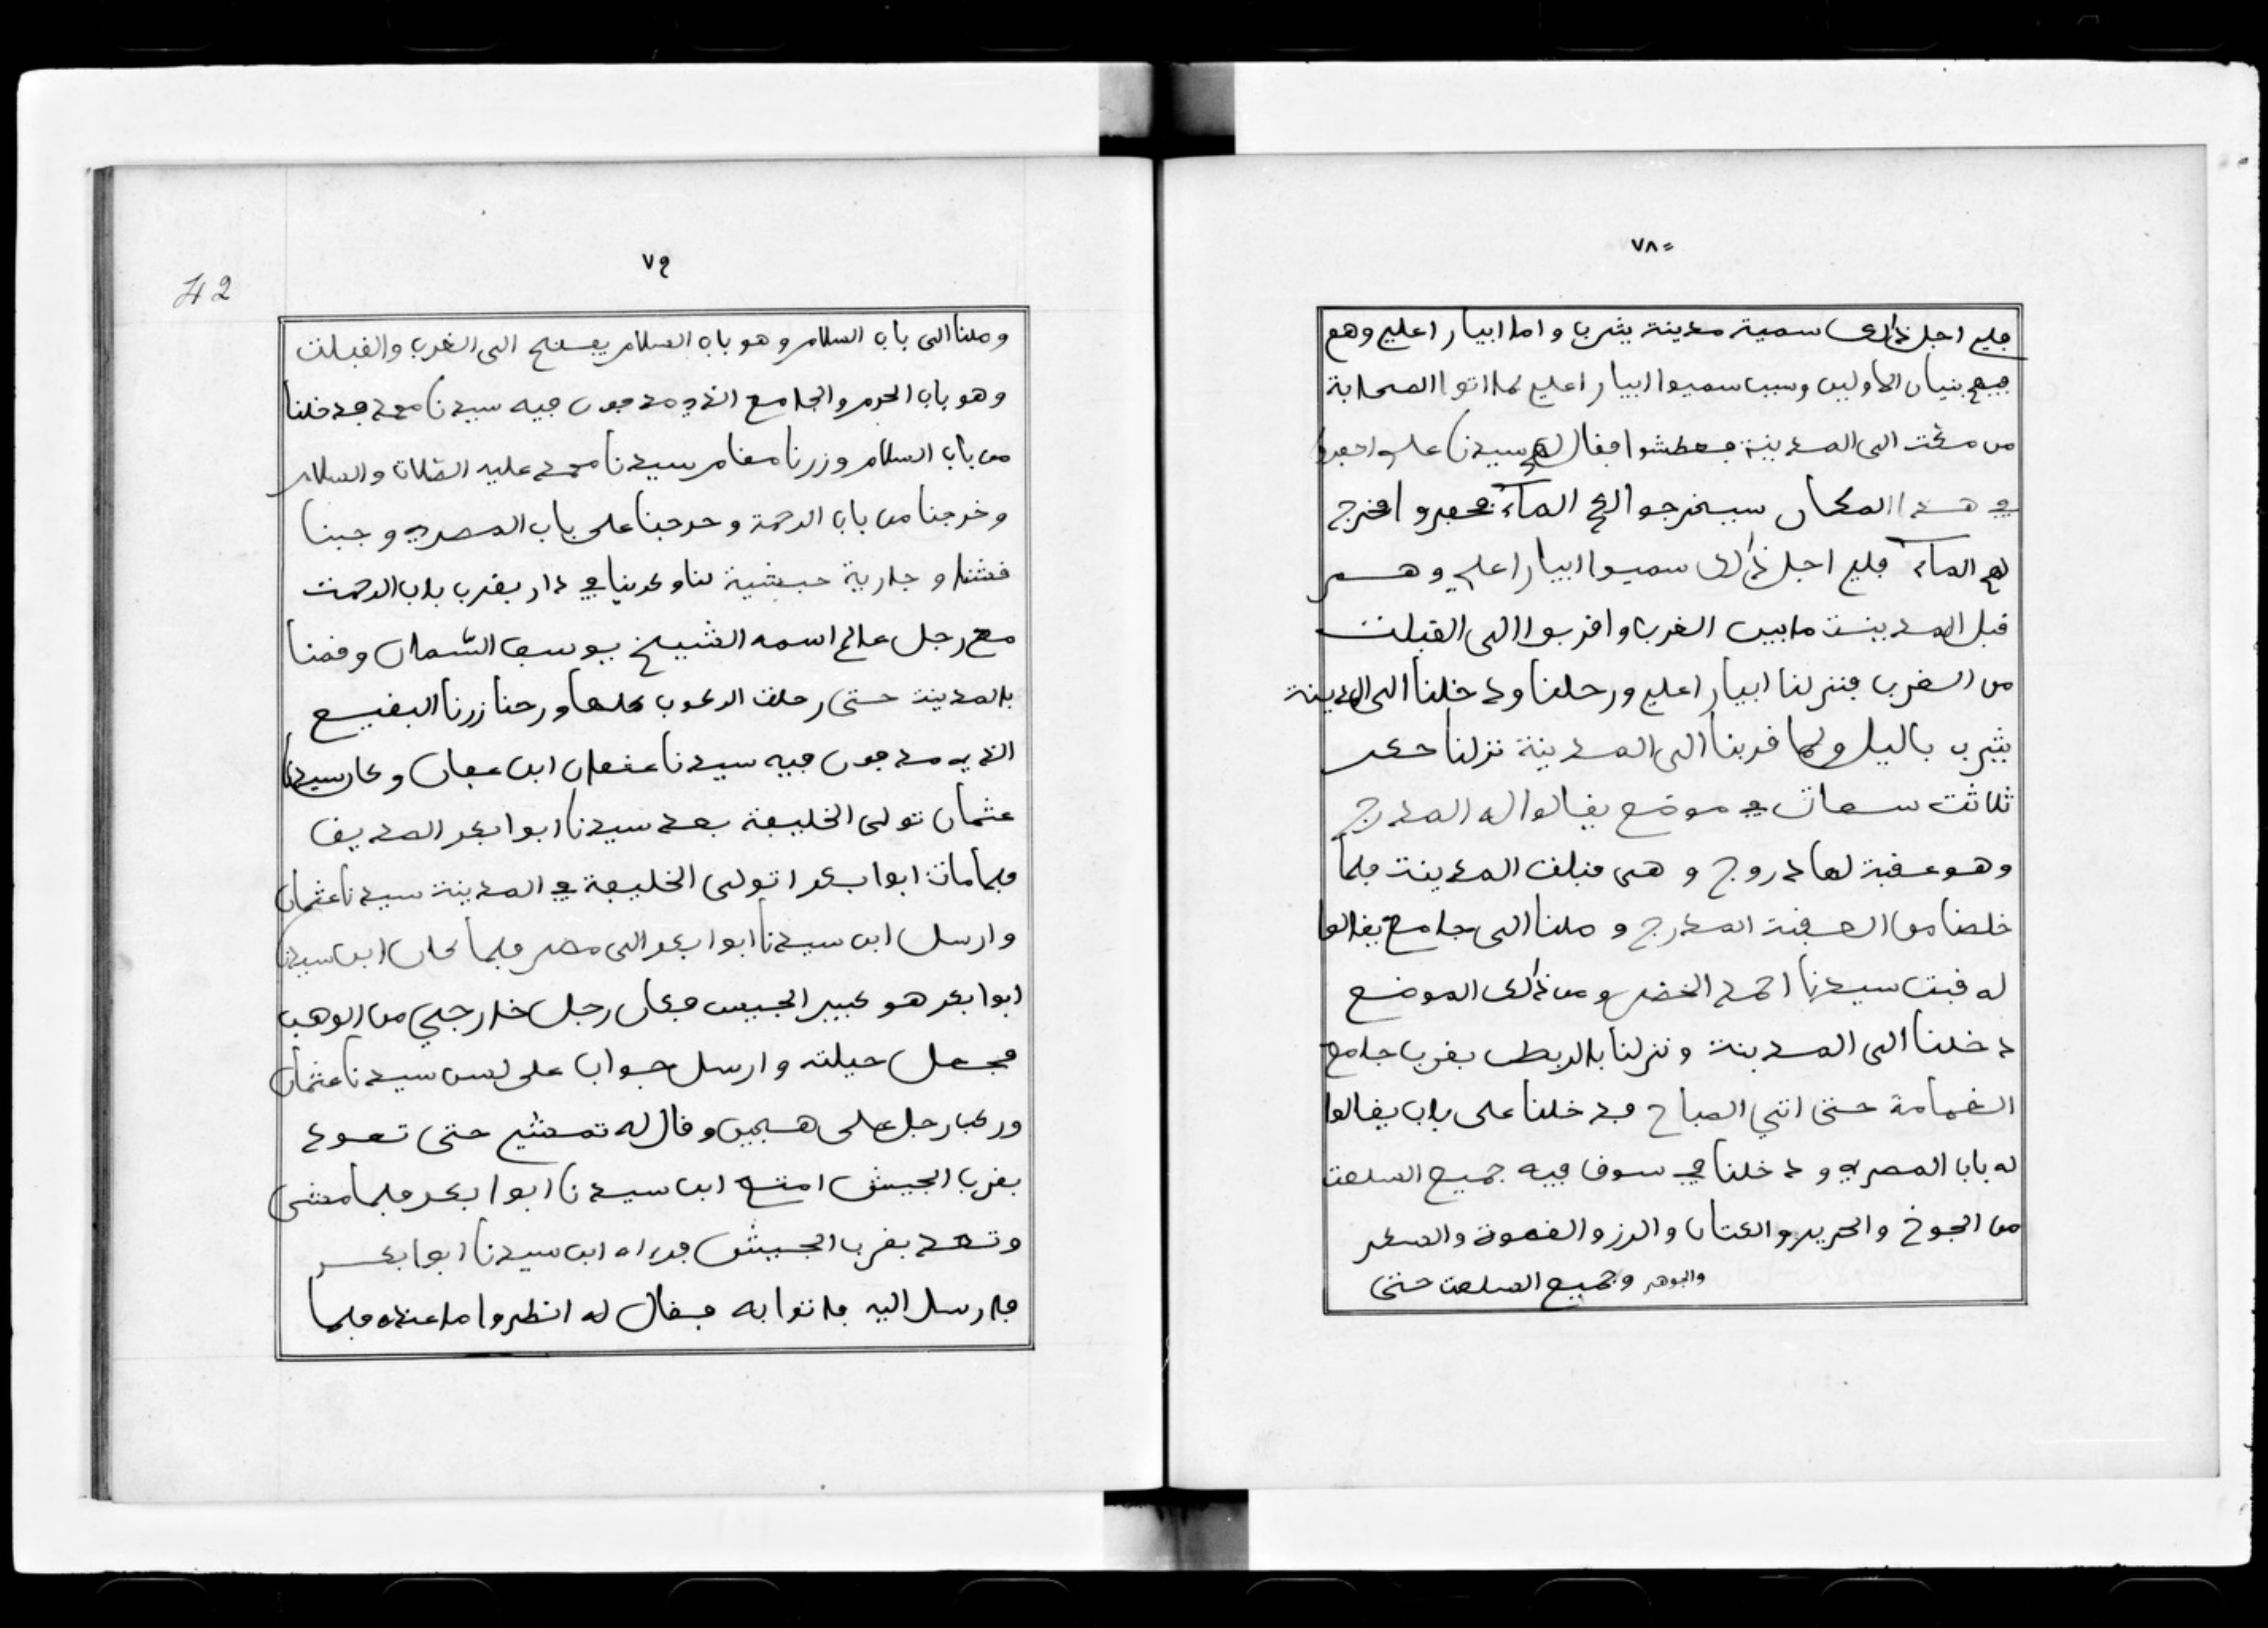 ٧٨
فلي اجل ذالك سمية مدينة يثرب واما ابيار اعلي وهم
فيهم بنيان الاولين وسبب سميوا ابيار اعلي لما اتوا الصحابة
من مكت الى المدينة فعطشوا فقال لهم سيدنا علي احفروا
في هذا المكان سيخرجوا لكم الماء فحفروا فخرج
لهم الماء فلي اجل ذالك سميوا ابيار اعلي وهم
قبل المدينة مابين الغرب واقربوا الى القبلت
من الغرب فنزلنا ابيار اعلي ورحلنا ودخلنا الى المدينة
يثرب باليل ولما قربنا الى المدينة نزلنا حكر
ثلاثت سعات في موضع يقالوا له المدرج
وهو عقبة لها دروج وهى قبلت المدينت فلما
خلصنا من العقبة المدرج وملنا الى جامع يقالوا
له قبت سيدنا احمد الخضر ومن ذالك الموضع
دخلنا الى المدينة ونزلنا بالربط بقرب جامع
الغمامة حتى اتي الصباح فدخلنا على باب يقالوا
له باب المصري ودخلنا في سوق فيه جميع السلعت
من الجوخ والحرير والكتان والرز والقهوة والسكر
والجوهر وجميع السلعت حتى
٧٩
42
وملنا الى باب السلام وهو باب السلام يفتح الى الغرب والقبلت
وهو باب الحرم والجامع الذي مدفون فيه سيدنا محمد فدخلنا
من باب السلام وزرنا مقام سيدنا محمد عليه الصلات والسلام
وخرجنا من باب الرحمة وخرجنا على باب المصري وجبنا
قشنا وجارية حبشية لنا وكرينا في دار بقرب باب الرحمت
مع رجل عالم اسمه الشيخ يوسف السمان وقمنا
بالمدينة حتى رحلت الركوب كلها ورحنا زرنا البقيع
الذي مدفون فيه سيدنا عثمان ابن عفان وكان سيدنا
عثمان تولى الخليفة بعد سيدنا ابوا بكر الصديق
فلما مات ابوا بكر اتولى الخليفة في المدينة سيدنا عثمان
وارسل ابن سيدنا ابوا بكر الى مصر فلما كان ابن سيدنا
ابوا بكر هو كبير الجيس فكان رجل خارجي من الوهب
فجعل حيلته وارسل جواب على لسن سيدنا عثمان
وركب رجل على هجين وقال له تمشي حتى تعود
بقرب الجيش امتع ابن سيدنا ابوا بكر فلما مشى
وتعد بقرب الجيش فراه ابن سيدنا ابوا بكر
فارسل اليه فاتوا به فقال له انظروا ما عنده فلما